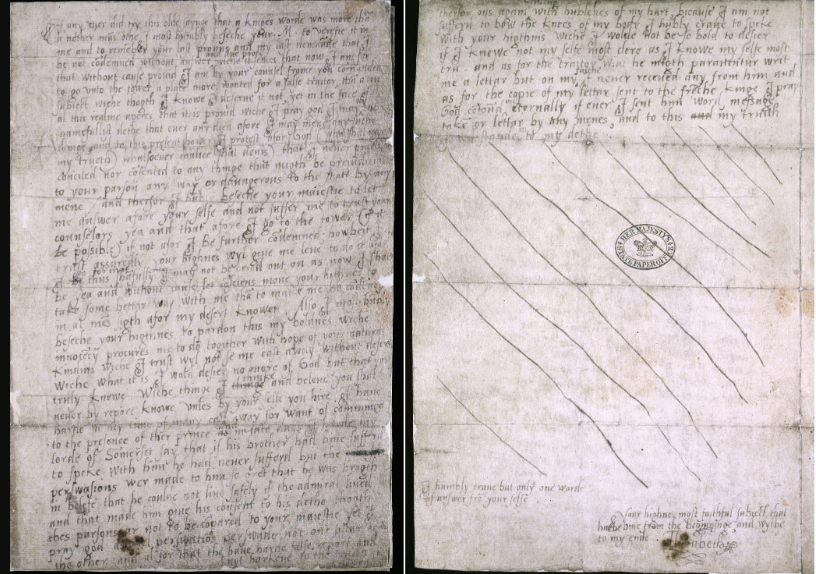 If any ever did try this olde saynge that a kinges worde was more tha
a nother mas othe I most humbly beseche your M. to verefie it in
me and to remeber your last promis and my last demaunde that I
be not condemned without answer and due profe wiche it semes that now I am for
that without cause provid I am by your counsel frome you comanded
to go unto the tower a place more wonted for a false traitor, tha a tru
subject wiche thogth I knowe I deserve it not, yet in the face of
al this realme aperes that it is provid wiche I pray god I may
shamefullist dethe that ever any died afore I may mene any suche
thinge and to this present hower I protest afor God
my trueth whatsoever malice shal devis that I never practised
conciled nor cosented to any thinge that migth be prejudicial
to your parson any way or daungerous to the stat by any
mene and therfor I hubly beseche your maiestie to let
me answer afore your selfe and not suffer me to trust your
counselors yea and that afore I go to the tower (if it
be possible) if not afor I be further codemned howbeit
I trust assuredly your highnes wyl give me leve to do it afor
I go for that thus shamfully I may not be cried out on as now I shalbe
be yea and without cause let consciens move your highnes to
take some bettar way with me tha to make me be codemned
in al mes sigth afor my desert knowen. Also I most hubly
beseche your highnes to pardon this my boldnes wiche
innocecy procures me to do togither with hope of your natural
kindnis wiche I trust wyl not se me cast away without desert
wiche what it is I wold desier no more of God but that you
truly knewe. Wiche thinge I thinke and beleve you shal
never by report knowe unles by your selfe you hire. I have
harde in my time of many cast away for want of comminge
to the presence of ther prince and in late days I harde my
lorde of Somerset say that if his brother had bine sufferd
to speke with him he had never sufferd but the
perswasions wer made to him so gret that he was brogth
in belefe that he coulde not live safely if the admiral lived
and that made him give his consent to his dethe thogth
thes parsons ar not to be copared to your maiestie yet I
pray god as ivel perswatios perswade not one sistar again
the other and al for that the have harde false report and
not harkene to the
therfor ons again with hublenes of my hart, bicause I am not
sufferd to bow the knees of my body I hubly crave to speke
with your highnis wiche I wolde not be so bold to desier
if I knewe not my selfe most clere as I knowe my selfe most
tru. and as for the traitor Wiat he migth paraventur writ
me a lettar but on my faithe I never receved any from him and
as for the copie of my lettar sent to the freche kinge I pray
God cofound me eternally if ever I sent him word, message,
toke or lettar by any menes, and to this my truith
I wil stande it to my dethe.
HER MAJESTY'S STATE PAPER OFFICE
I humbly crave but only one worde
of answer fro your selfe
Your highnes most faithful subject that
hathe bine from the beginninge and wylbe
to my ende
Elizabeth